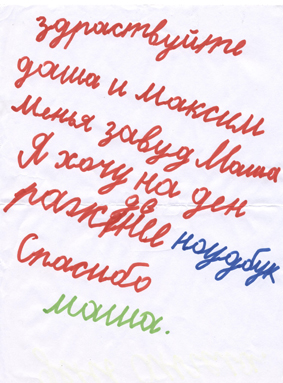 здраствуйте
даша и максим
менья завуд Маша
Я хочу на ден
де
ражние ноудбук
Спасибо
маша.